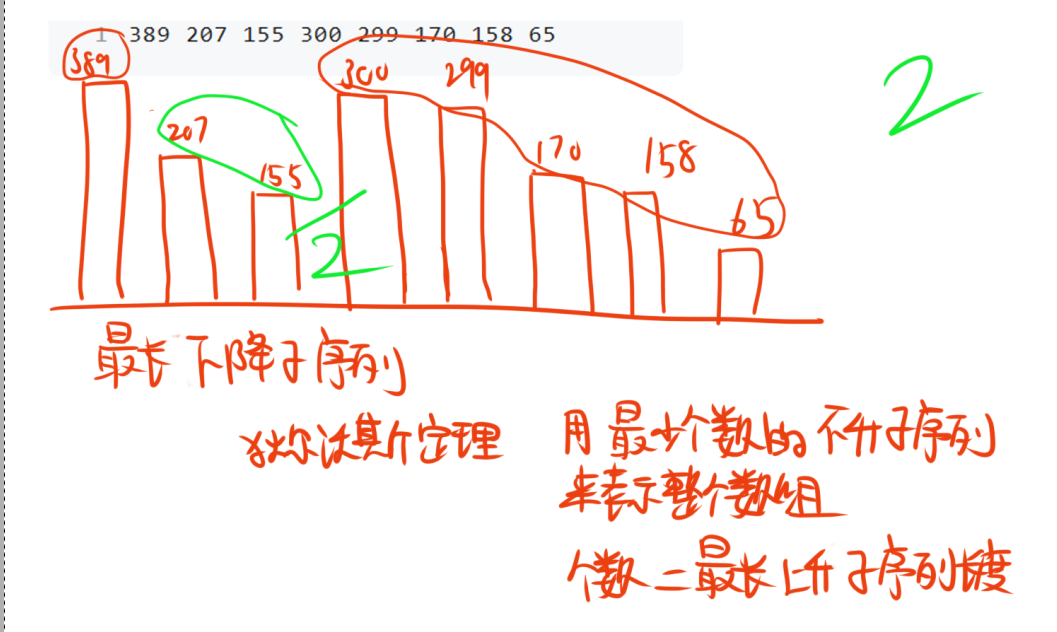 1 389 207 155 300 299 170 158 65
389 300 299
207 170 158
155 65
2
2
最长下降子序列
狄尔沃斯定理 用最少个数的不升子序列
来表示整个数组
个数=最长上升子序列长度